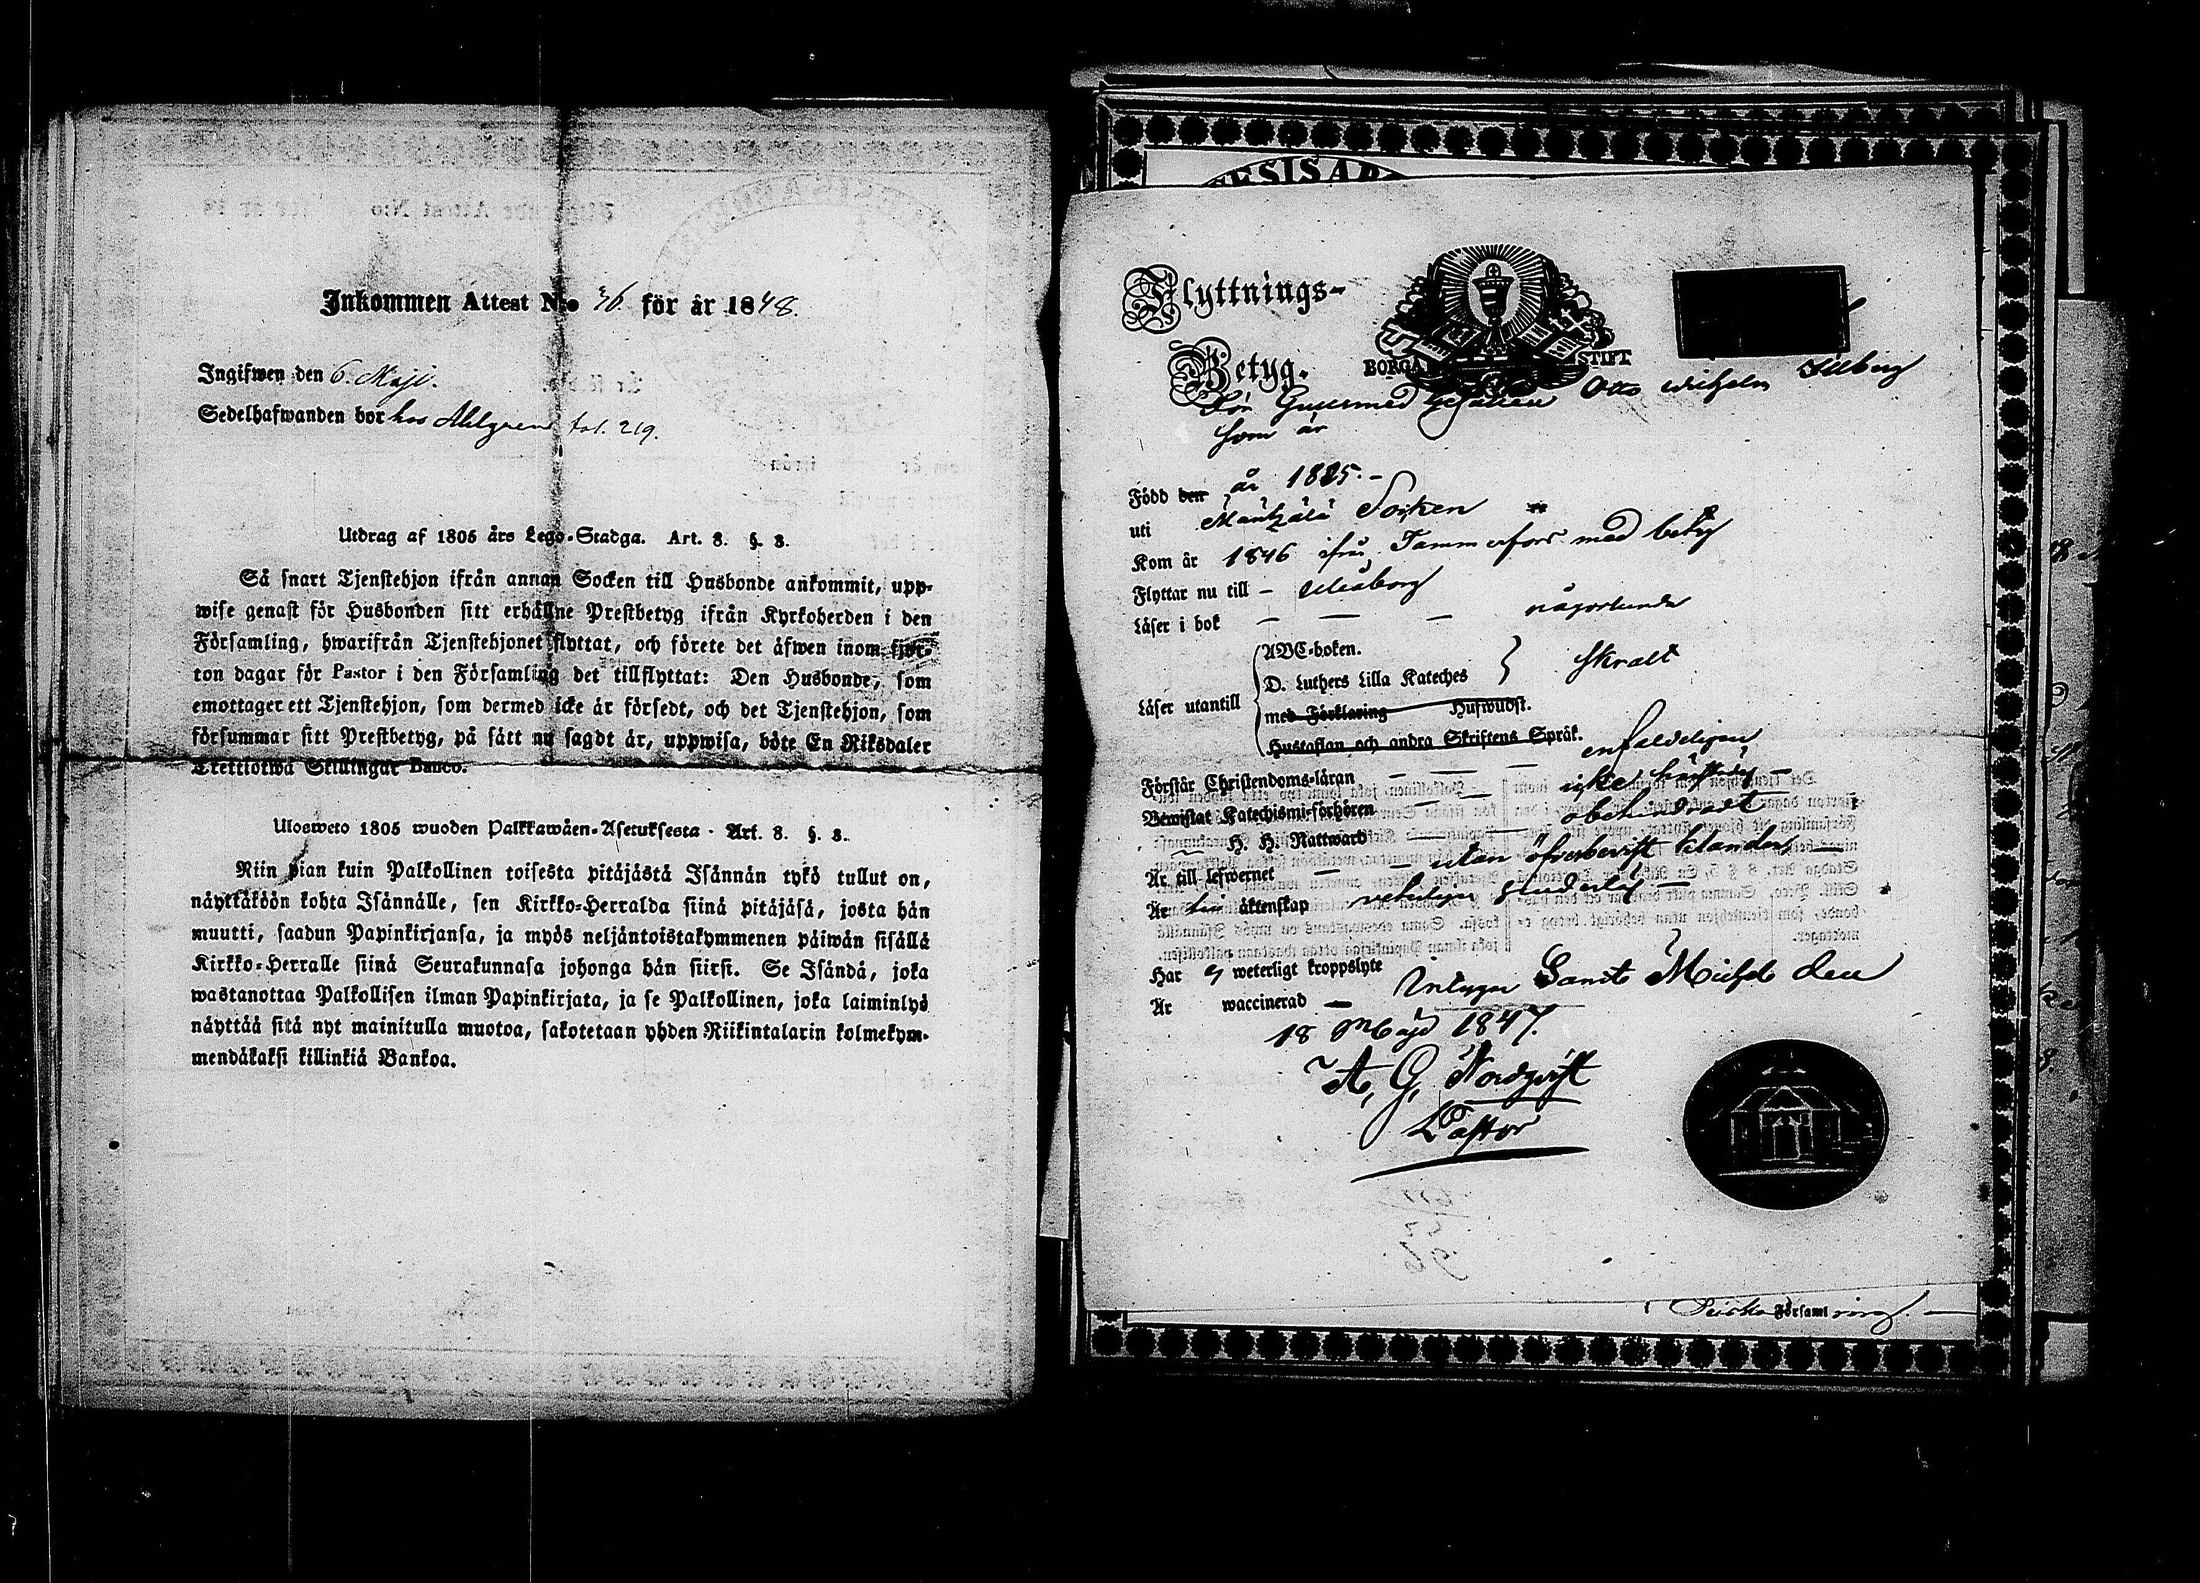 Inkommen Attest N:o 36. för år 1848.
Ingifwen den 6. Maji.
Sedelhafwanden bor hos Ahlgren fol. 219.
Utdrag af 1805 års Lego-Stadga. Art. 8. §. 3.
Så snart Tjenstehjon ifrån annan Socken till Husbonde ankommit, upp-
wise genast för Husbonden sitt erhållne Prestbetyg ifrån Kyrkoherden i den
Församling, hwarifrån Tjenstehjonet flyttat, och förete det äfwen inom fjor-
ton dagar för Pastor i den Församling det tillflyttat: Den Husbonde, som
emottager ett Tjenstehjon, som dermed icke är försedt, och det Tjenstehjon, som
försummar sitt Prestbetyg, på sätt nu sagdt är, uppwisa, böte En Riksdaler
Trettiotwå Skillingar Banco.
Ulosweto 1805 wuoden Palkkawäen-Asetuksesta. Art. 8. §. 3.
Niin pian kuin Palkollinen toisesta pitäjästä Isännän tykö tullut on,
näyttäköön kohta Isännälle, sen Kirkko-Herralda siinä pitäjäsä, josta hän
muutti, saadun Papinkirjansa, ja myös neljäntoistakymmenen päiwän sisällä
Kirkko-Herralle siinä Seurakunnasa johonga hän siirsi. Se Isändä, joka
wastanottaa Palkollisen ilman Papinkirjata, ja se Palkollinen, joka laiminlyö
näyttää sitä nyt mainitulla muotoa, sakotetaan yhden Riikintalarin kolmekym-
mendäkaksi killinkiä Bankoa.
Flyttnings-
Betyg.
BORGÅ STIFT
För Gesällen Otto Wilhelm
som är
Född den år 1825.
uti Mäntzälä Socken
Kom år 1846 ifrån Tammerfors med betyg
Flyttar nu till - Uleåborg
Läser i bok - - - någorlunda
Läser utantill
ABC-boken.
D. Luthers Lilla Kateches
skralt
med Förklaring Hufwudst.
Hustaflan och andra Skriftens Språk.
Förstår Christendoms-läran - - - enfaldeligen
Bewistat Katechismi-förhören - - icke
H. H. Nattward - - obehindradt
Är till lefwernet - utan öfverbevist klander
Är till äktenskap
Har ej weterligt kroppslyte
Är waccinerad - Sanct Michel den
18 Maji 1847.
A. G. Nordqvist
Pastor
Församl